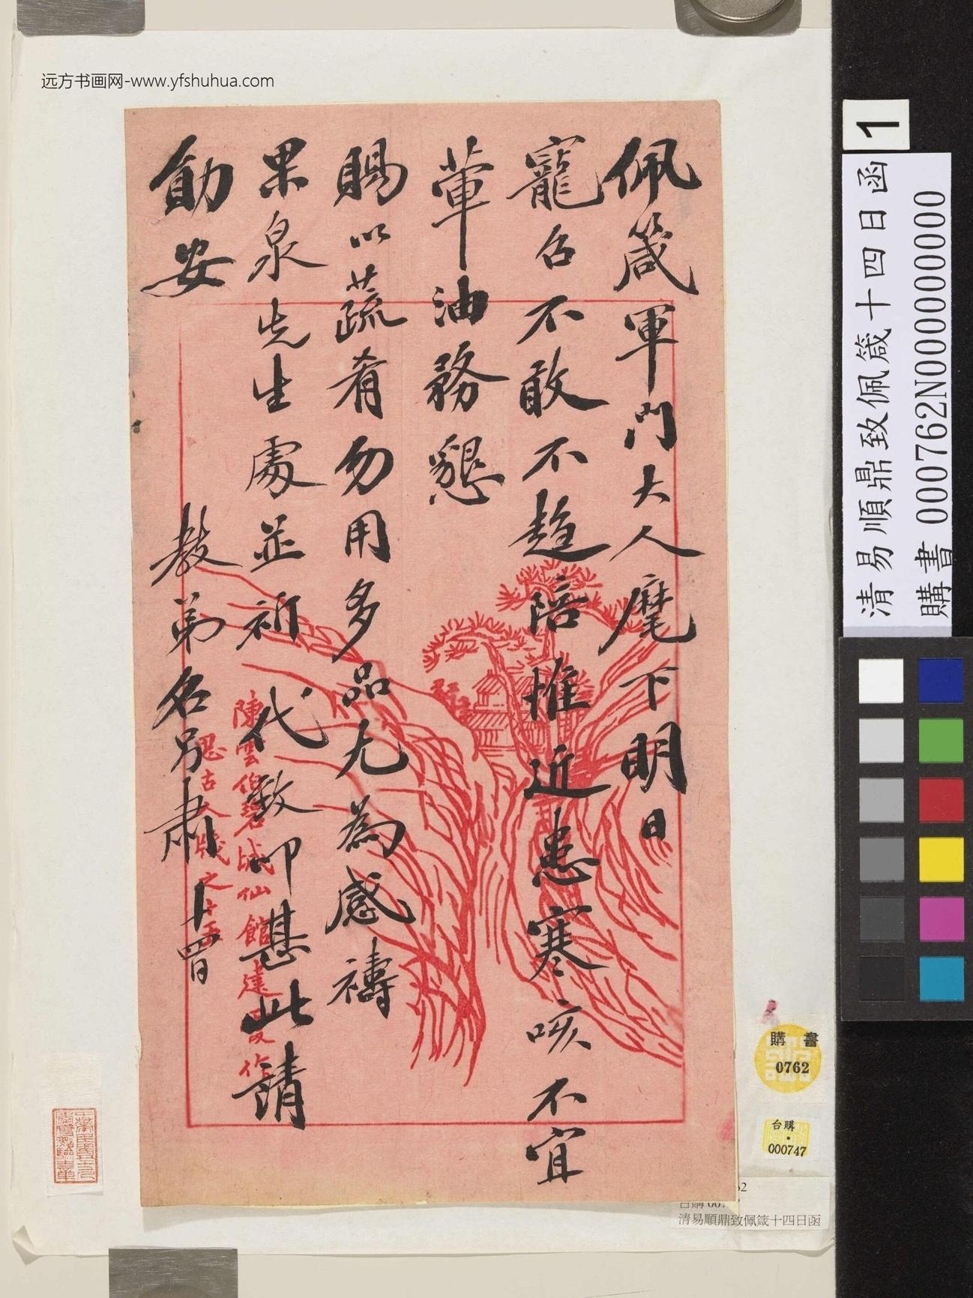 远方书画网-www.yfshuhua.com
佩箴軍門大人麾下明日
寵召不敢不趨陪惟近患寒咳不宜
葷油務懇
賜以蔬肴勿用多品尤為感禱
果泉先生處並祈代致叩甚此請
勛安
教弟名另肅十四日
陳雲伯碧城仙館建
思古人牋之十五
1
清易順鼎致佩箴十四日函
購書 000762N000000000
購書
0762
台購
000747
清易順鼎致佩箴十四日函